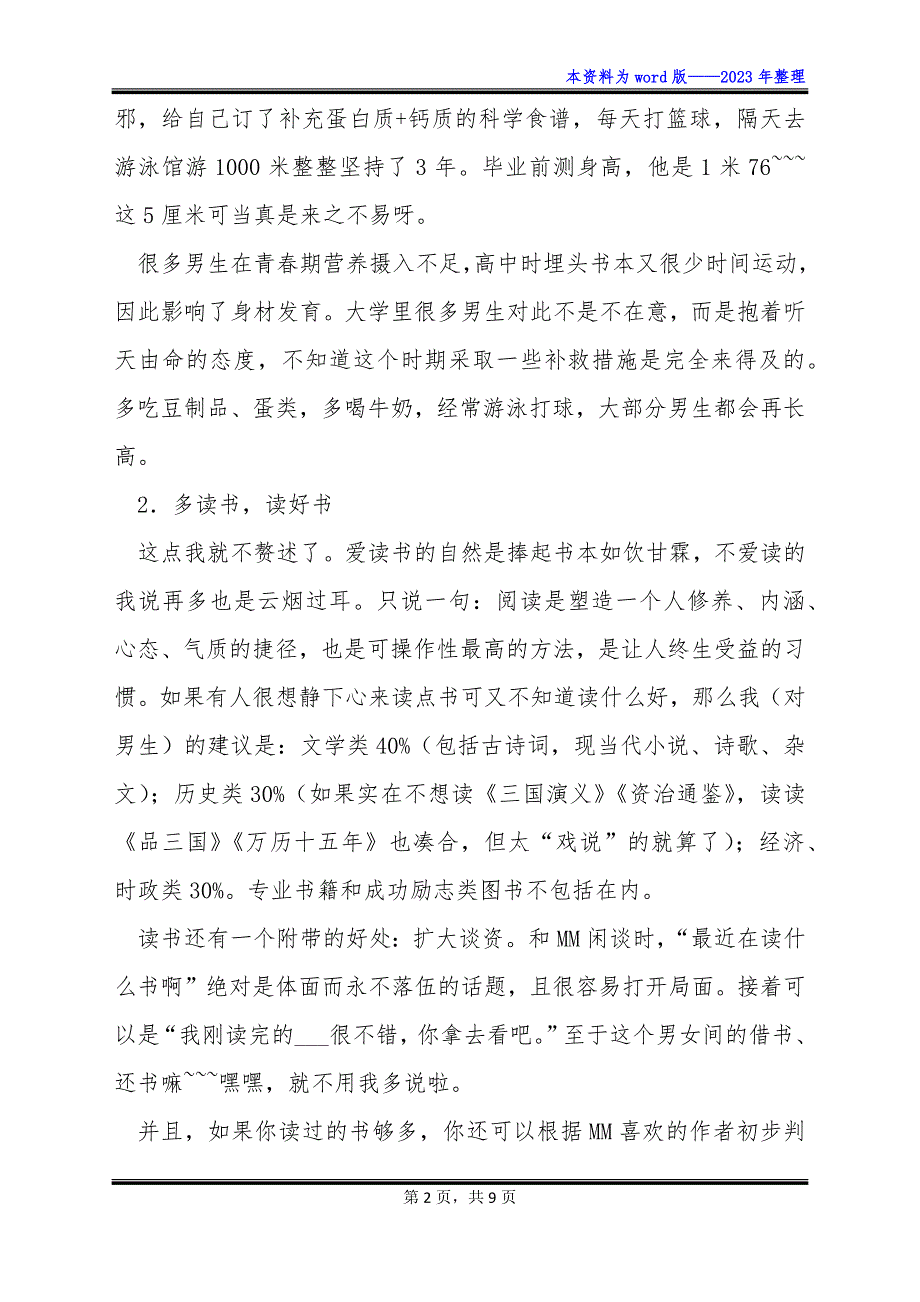 本资料为 word 版——2023 年整理
邪，给自己订了补充蛋白质+钙质的科学食谱，每天打篮球，隔天去
游泳馆游 1000 米整整坚持了 3 年。毕业前测身高，他是 1 米 76~~~
这 5 厘米可当真是来之不易呀。
很多男生在青春期营养摄入不足，高中时埋头书本又很少时间运动，
因此影响了身材发育。大学里很多男生对此不是不在意，而是抱着听
天由命的态度，不知道这个时期采取一些补救措施是完全来得及的。
多吃豆制品、蛋类，多喝牛奶，经常游泳打球，大部分男生都会再长
高。
2．多读书，读好书
这点我就不赘述了。爱读书的自然是捧起书本如饮甘霖，不爱读的
我说再多也是云烟过耳。只说一句：阅读是塑造一个人修养、内涵、
心态、气质的捷径，也是可操作性最高的方法，是让人终生受益的习
惯。如果有人很想静下心来读点书可又不知道读什么好，那么我（对
男生）的建议是：文学类 40%（包括古诗词，现当代小说、诗歌、杂
文）；历史类 30%（如果实在不想读《三国演义》《资治通鉴》，读读
《品三国》《万历十五年》也凑合，但太“戏说”的就算了）；经济、
时政类 30%。专业书籍和成功励志类图书不包括在内。
读书还有一个附带的好处：扩大谈资。和 MM 闲谈时，“最近在读什
么书啊”绝对是体面而永不落伍的话题，且很容易打开局面。接着可
以是“我刚读完的___很不错，你拿去看吧。”至于这个男女间的借书、
还书嘛~~~嘿嘿，就不用我多说啦。
并且，如果你读过的书够多，你还可以根据 MM 喜欢的作者初步判
第 2 页，共 9 页